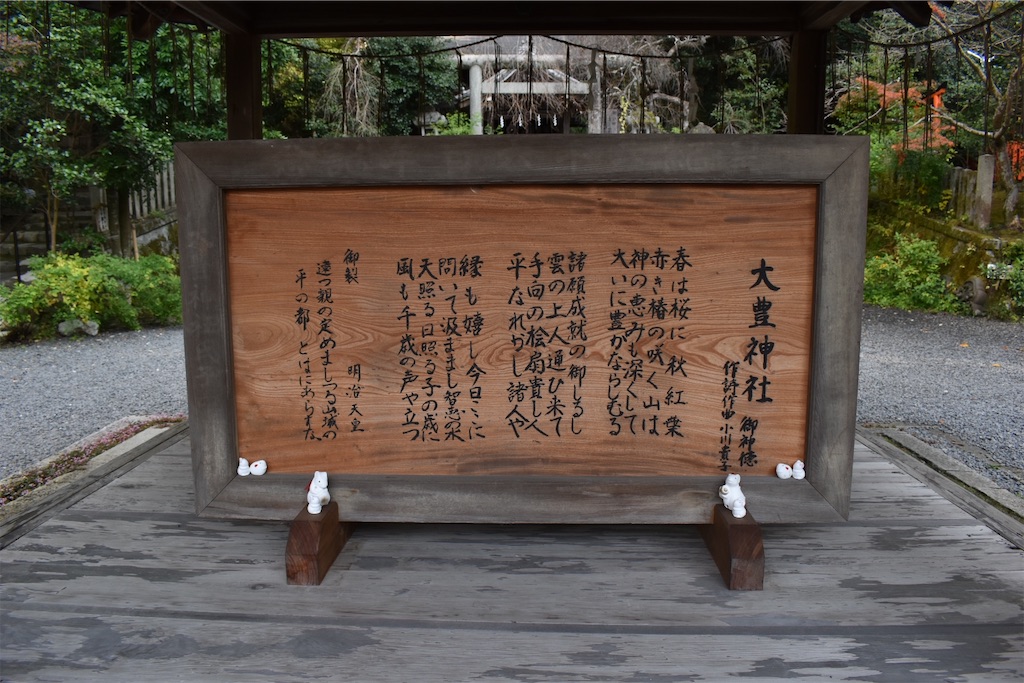 大豊神社 御神徳
作詩作曲 小川貴子
春は桜に 秋紅葉
赤き椿の咲く山は
神の恵みも深くして
大いに豊かならしむる
諸願成就の御しるし
雲の上人通ひ来て
手向の桧扇貴し人
平たれかし諸人や
縁も嬉し今日ここに
問いて汲ままし智慧の水
天照る日照る子の歳に
風も千歳の声や立つ
御製
明治天皇
遠つ親の定めましつる山城の
平の都とはにあらすな